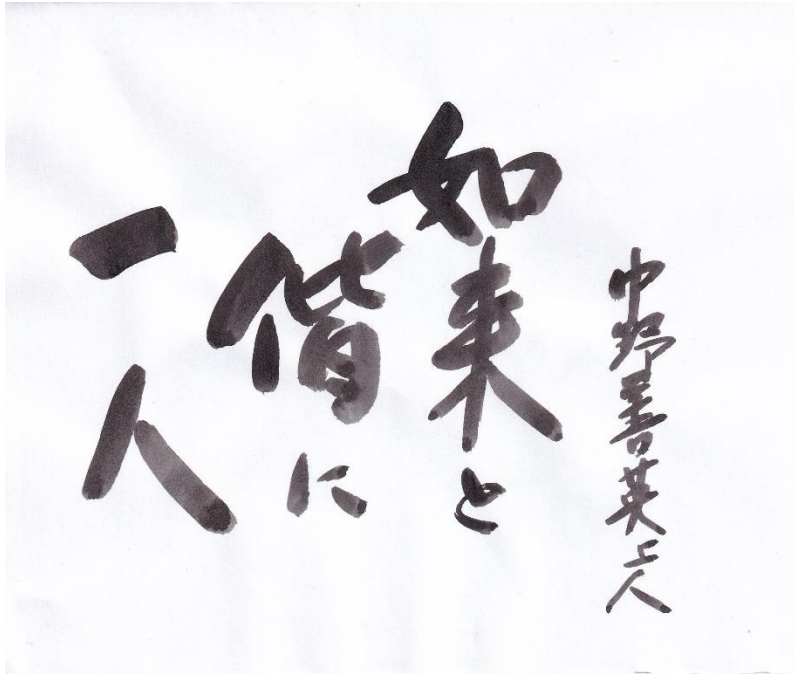 中野善英上人
如来と
偕に
一人